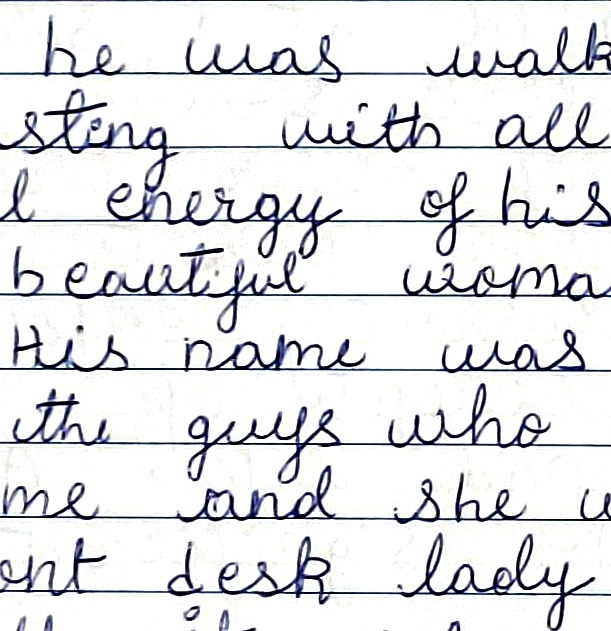 he was walk
sting with all
l energy of his
beautiful woma
His name was
the guys who
me and she
ont desk lady